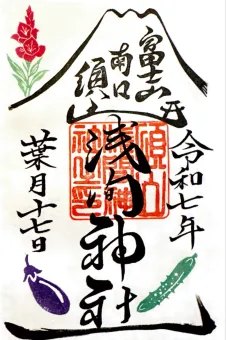 富士山
南口
須山
令和七年
浅間神社
葉月十七日